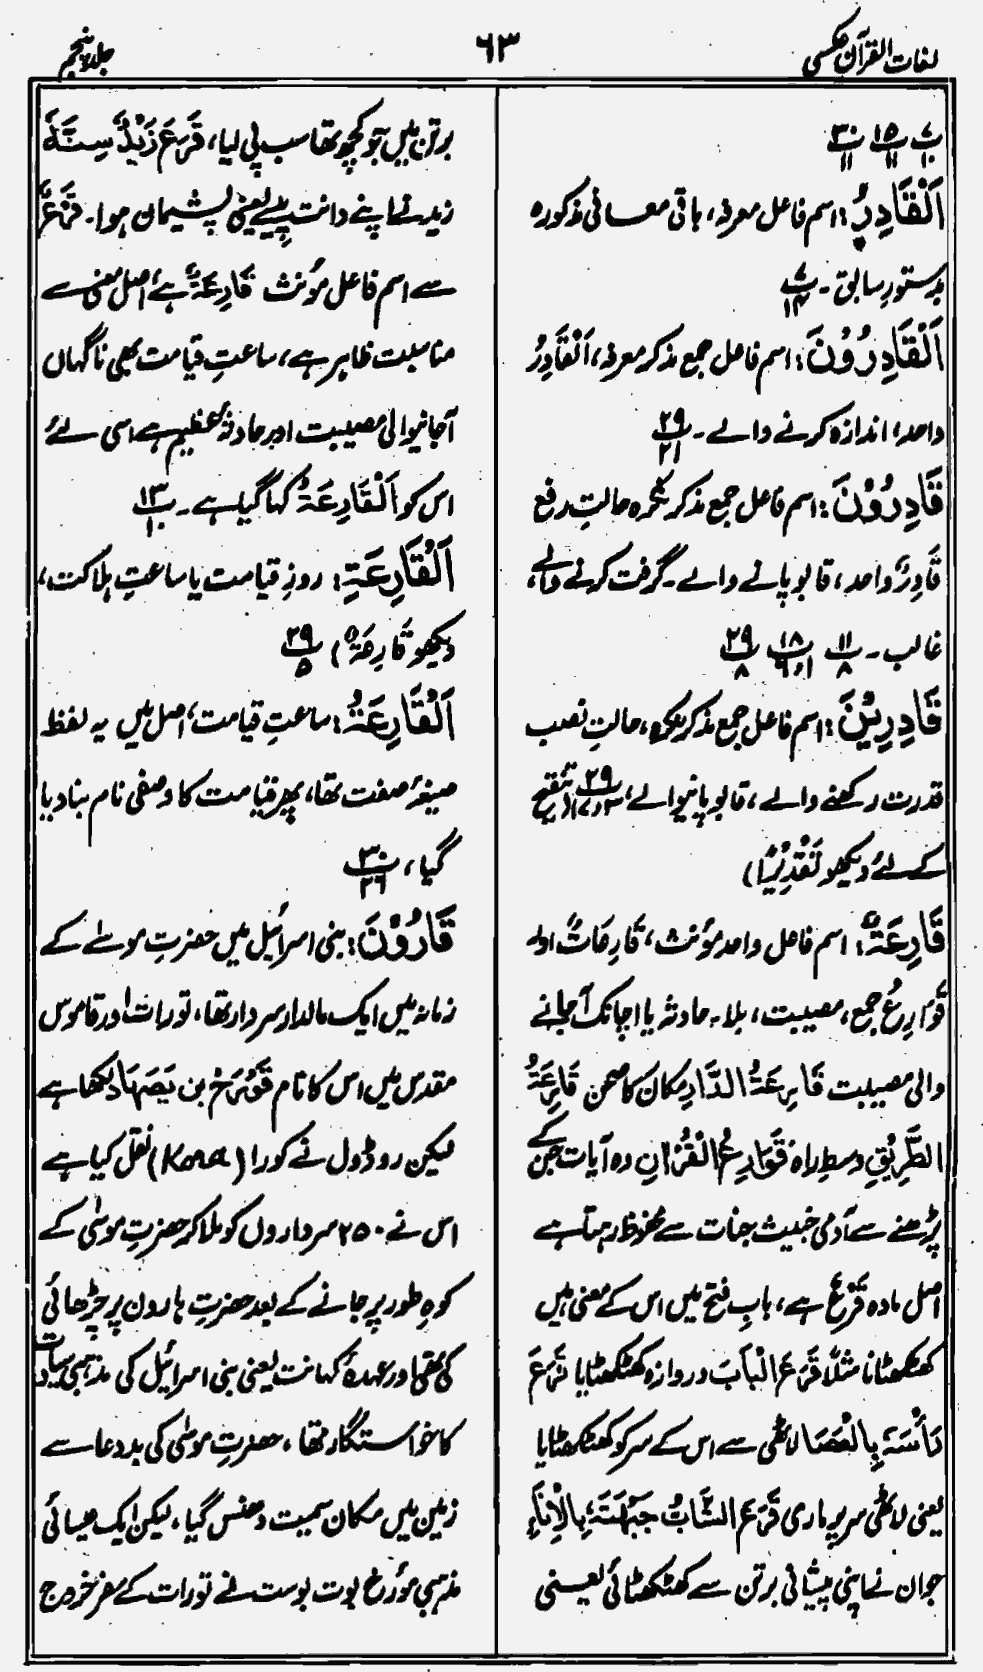 لغات القرآن عکسی
٦٣
جلد پنجم
پ۷/۱۰ پ۱۵/۱۱ پ۳۰/۱۱
اَلْقَادِرُ: اسم فاعل معرفہ، باقی معانی مذکورہ
بدستورِ سابق۔ پ۷/۱۴
اَلْقَادِرُوْنَ: اسم فاعل جمع مذکر معرفہ، اَلْقَادِرُ
واحد، اندازہ کرنے والے۔ پ۲۹/۲۱
قَادِرُوْنَ: اسم فاعل جمع مذکر نکرہ حالتِ رفع
قَادِرٌ واحد، قابو پانے والے۔ گرفت کرنے والے،
غالب۔ پ۱۱/۸ پ۱۸/۱و۶ پ۲۹/۸
قَادِرِیْنَ: اسم فاعل جمع مذکر نکرہ، حالتِ نصب
قدرت رکھنے والے، قابو پانیوالے، پ۲۹ تنقیح
کے لئے دیکھو تَقْدِیْرًا)
قَارِعَۃٌ: اسم فاعل واحد مؤنث، قَارِعَاتٌ اور
قَوَارِعُ جمع، مصیبت، بلا۔ حادثہ یا اچانک آجانے
والی مصیبت قَارِعَۃُ الدَّارِ مکان کا صحن قَارِعَۃُ
الطَّرِیْقِ وسطِ راہ قَوَارِعُ الْقُرْاٰنِ وہ آیات جن کے
پڑھنے سے آدمی خبیث جنات سے محفوظ رہتا ہے
اصل مادہ قَرْعٌ ہے، بابِ فتح میں اس کے معنی ہیں
کھٹکھٹانا مثلاً قَرَعَ الْبَابَ دروازہ کھٹکھٹایا قَرَعَ
رَأْسَہٗ بِالْعَصَا لاٹھی سے اس کے سر کو کھٹکھٹایا
یعنی لاٹھی سر پر ماری قَرَعَ الشَّابُّ جَبْہَتَہٗ بِالْاِنَاءِ
جوان نے اپنی پیشانی برتن سے کھٹکھٹائی یعنی
برتن میں جو کچھ تھا سب پی لیا، قَرَعَ زَیْدٌ سِنَّہٗ
زید نے اپنے دانت پیسے یعنی پشیمان ہوا۔ قَرْعٌ
سے اسم فاعل مؤنث قَارِعَۃٌ ہے، اصل معنی سے
مناسبت ظاہر ہے، ساعتِ قیامت بھی ناگہاں
آجانیوالی مصیبت اور حادثۂ عظیم ہے اسی لئے
اس کو اَلْقَارِعَۃُ کہا گیا ہے۔ پ۱۳/۱۰
اَلْقَارِعَۃِ: روزِ قیامت یا ساعتِ ہلاکت،
دیکھو قَارِعَۃٌ) پ۲۹/۵
اَلْقَارِعَۃُ: ساعتِ قیامت، اصل میں یہ لفظ
صیغۂ صفت تھا، پھر قیامت کا وصفی نام بنا دیا
گیا، پ۳۰/۲۶
قَارُوْنَ: بنی اسرائیل میں حضرتِ موسےٰ کے
زمانہ میں ایک مالدار سردار تھا، تورات اور قاموس
مقدس میں اس کا نام قَوْرَحْ بن یَصْہَا دکھا ہے
لیکن روڈول نے کورا (Kora) نقل کیا ہے
اس نے ۲۵۰ سرداروں کو ملا کر حضرتِ موسٰی کے
کوہِ طور پر جانے کے بعد حضرتِ ہارون پر چڑھائی
کی تھی اور عہدۂ کہانت یعنی بنی اسرائیل کی مذہبی سیادت
کا خواستگار تھا، حضرتِ موسٰی کی بددعا سے
زمین میں مکان سمیت دھنس گیا، لیکن ایک عیسائی
مذہبی مؤرخ یوت یوست نے تورات کے سفر خروج